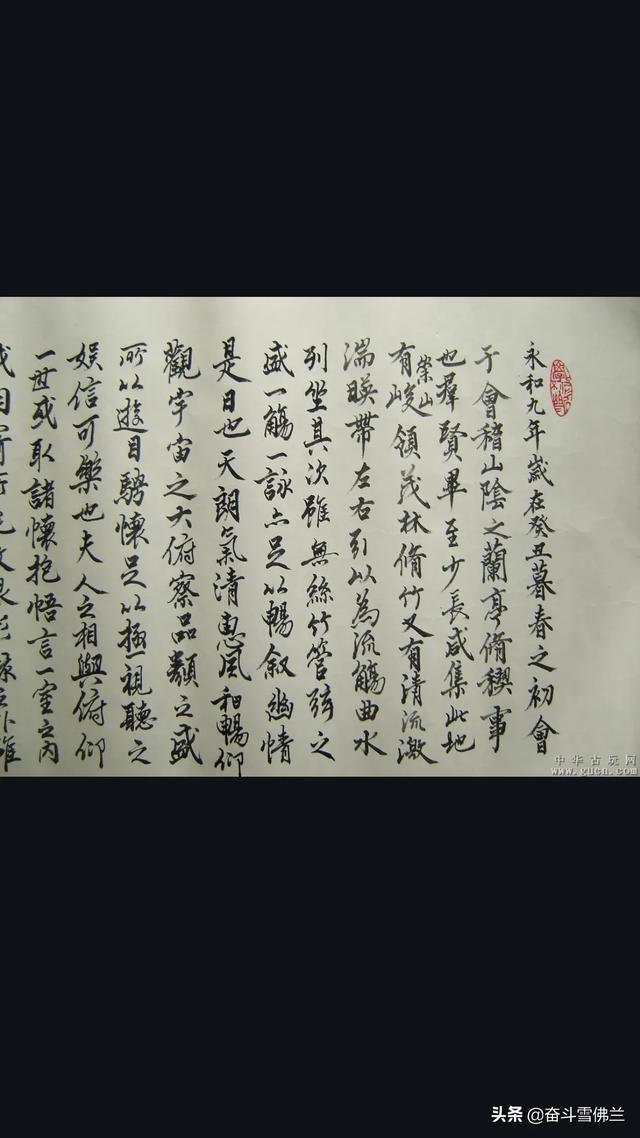 永和九年歲在癸丑暮春之初會
于會稽山陰之蘭亭脩稧事
也羣賢畢至少長咸集此地
有崇山峻領茂林脩竹又有清流激
湍暎帶左右引以為流觴曲水
列坐其次雖無絲竹管弦之
盛一觴一詠亦足以暢叙幽情
是日也天朗氣清惠風和暢仰
觀宇宙之大俯察品類之盛
所以遊目騁懷足以極視聽之
娱信可樂也夫人之相與俯仰
一世或取諸懷抱悟言一室之內
中华古玩网
www.gucn.com
头条 @奋斗雪佛兰